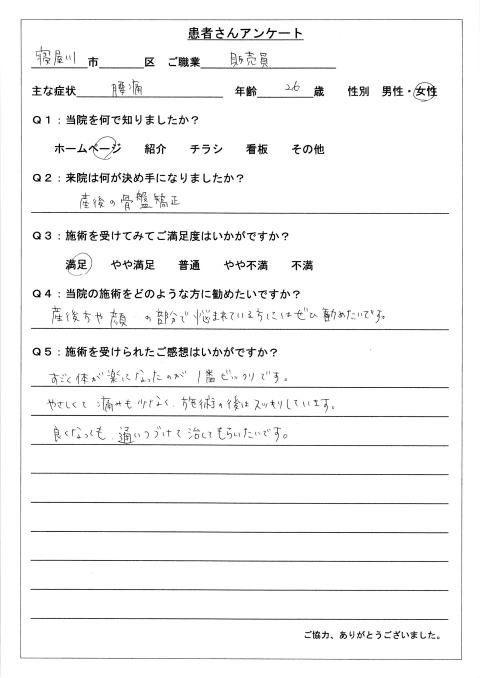 患者さんアンケート
寝屋川市 区 ご職業 販売員
主な症状 腰痛 年齢 26 歳 性別 男性・女性
Q1：当院を何で知りましたか？
ホームページ 紹介 チラシ 看板 その他
Q2：来院は何が決め手になりましたか？
産後の骨盤矯正
Q3：施術を受けてみてご満足度はいかがですか？
満足 やや満足 普通 やや不満 不満
Q4：当院の施術をどのような方に勧めたいですか？
産後方や顔の部分で悩まれている方にはぜひ勧めたいです。
Q5：施術を受けられたご感想はいかがですか？
すごく体が楽になったのが1番ビックリです。
やさしくて痛みも少なく、施術の後はスッキリしています。
良くなっても、通いつづけて治してもらいたいです。
ご協力、ありがとうございました。